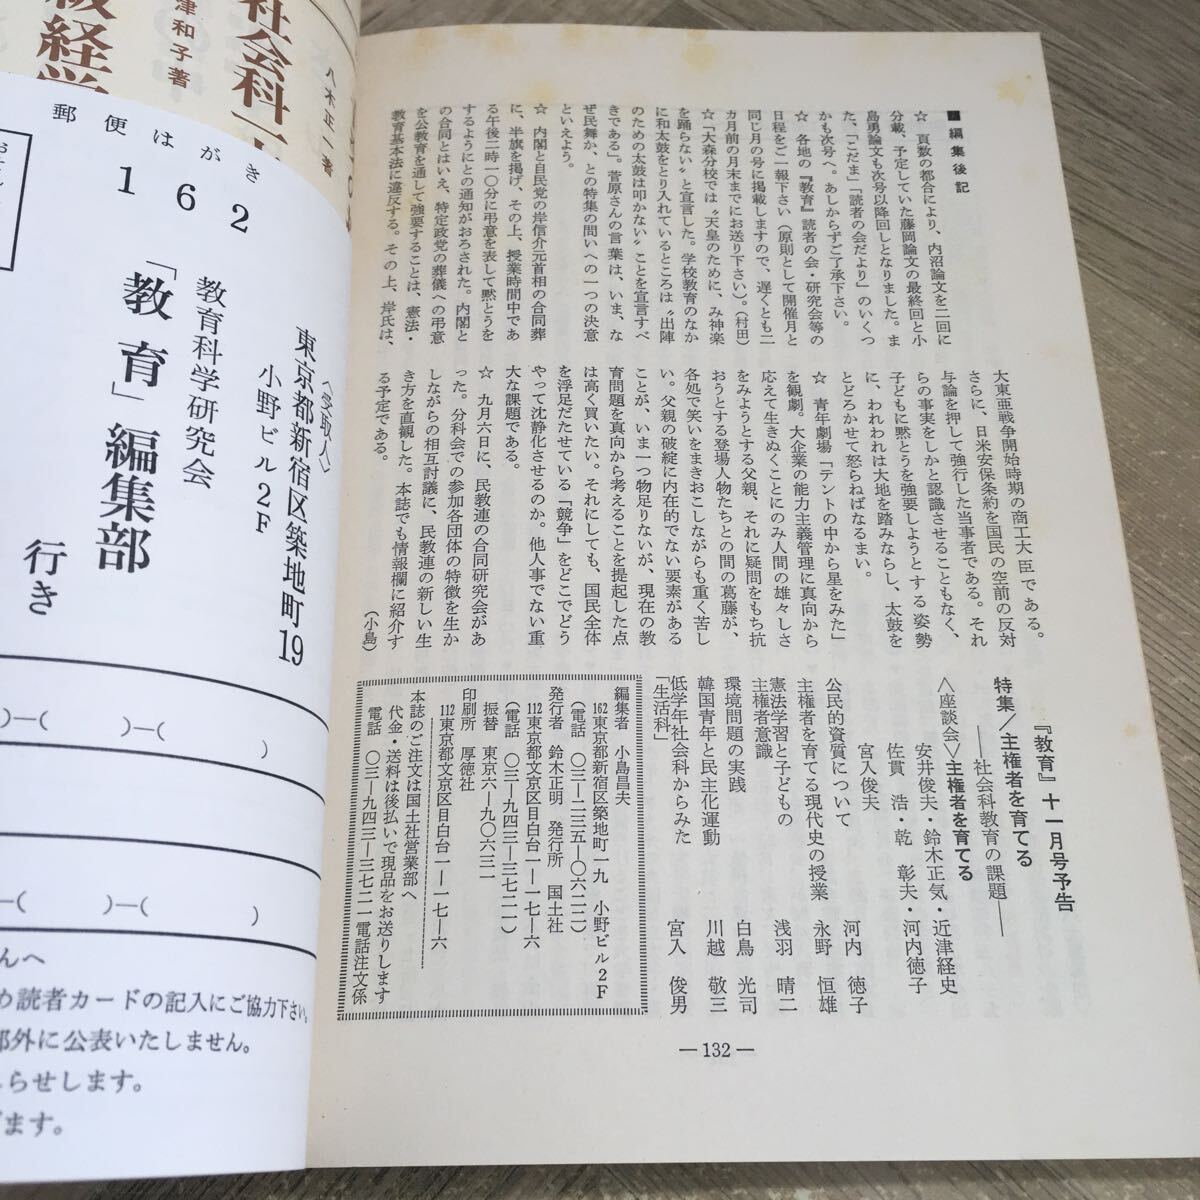 ■編集後記
☆　頁数の都合により、内沼論文を二回に
分載、予定していた藤岡論文の最終回と小
島勇論文も次号以降回しとなりました。ま
た、「こだま」「読者の会だより」のいくつ
かも次号へ。あしからずご了承下さい。
☆　各地の『教育』読者の会・研究会等の
日程をご一報下さい（原則として開催月と
同じ月の号に掲載しますので、遅くとも二
カ月前の月末までにお送り下さい）。（村田）
☆「大森分校では〝天皇のために、み神楽
を踊らない〟と宣言した。学校教育のなか
に和太鼓をとり入れているところは〝出陣
のための太鼓は叩かない〟ことを宣言すべ
きである」。菅原さんの言葉は、いま、な
ぜ民舞か、との特集の問いへの一つの決意
といえよう。
☆　内閣と自民党の岸信介元首相の合同葬
に、半旗を掲げ、その上、授業時間中であ
る午後二時一〇分に弔意を表して黙とうを
するようにとの通知がおろされた。内閣と
の合同とはいえ、特定政党の葬儀への弔意
を公教育を通して強要することは、憲法・
教育基本法に違反する。その上、岸氏は、
大東亜戦争開始時期の商工大臣である。
さらに、日米安保条約を国民の空前の反対
与論を押して強行した当事者である。それ
らの事実をしかと認識させることもなく、
子どもに黙とうを強要しようとする姿勢
に、われわれは大地を踏みならし、太鼓を
とどろかせて怒らねばなるまい。
☆　青年劇場「テントの中から星をみた」
を観劇。大企業の能力主義管理に真向から
応えて生きぬくことにのみ人間の雄々しさ
をみようとする父親、それに疑問をもち抗
おうとする登場人物たちとの間の葛藤が、
各処で笑いをまきおこしながらも重く苦し
い。父親の破綻に内在的でない要素がある
ことが、いま一つ物足りないが、現在の教
育問題を真向から考えることを提起した点
は高く買いたい。それにしても、国民全体
を浮足だたせている「競争」をどこでどう
やって沈静化させるのか。他人事でない重
大な課題である。
☆　九月六日に、民教連の合同研究会があ
った。分科会での参加各団体の特徴を生か
しながらの相互討議に、民教連の新しい生
き方を直観した。本誌でも情報欄に紹介す
る予定である。
（小島）
『教育』十一月号予告
特集／主権者を育てる
――社会科教育の課題――
〈座談会〉主権者を育てる
安井俊夫・鈴木正気・近津経史
佐貫　浩・乾　彰夫・河内徳子
宮入俊夫
公民的資質について　河内　徳子
主権者を育てる現代史の授業　永野　恒雄
憲法学習と子どもの
主権者意識　浅羽　晴二
環境問題の実践　白鳥　光司
韓国青年と民主化運動　川越　敬三
低学年社会科からみた
「生活科」　宮入　俊男
編集者　小島昌夫
162東京都新宿区築地町一九　小野ビル2F
（電話　〇三―二三五―〇六二二）
発行者　鈴木正明　発行所　国土社
112東京都文京区目白台一―一七―六
（電話　〇三―九四三―三七二一）
振替　東京六―九〇六三一
印刷所　厚徳社
112東京都文京区目白台一―一七―六
本誌のご注文は国土社営業部へ
代金・送料は後払いで現品をお送りします
電話　〇三―九四三―三七二一電話注文係
―132―
社会科一
級経学
津和子著
八木正一著
郵便はがき
162
〈受取人〉
東京都新宿区築地町19
小野ビル2F
教育科学研究会
「教育」編集部
行き
)―(　　)―(　　)
―(　　)―(　　)
んへ
め読者カードの記入にご協力下さい。
部外に公表いたしません。
らせします。
ます。